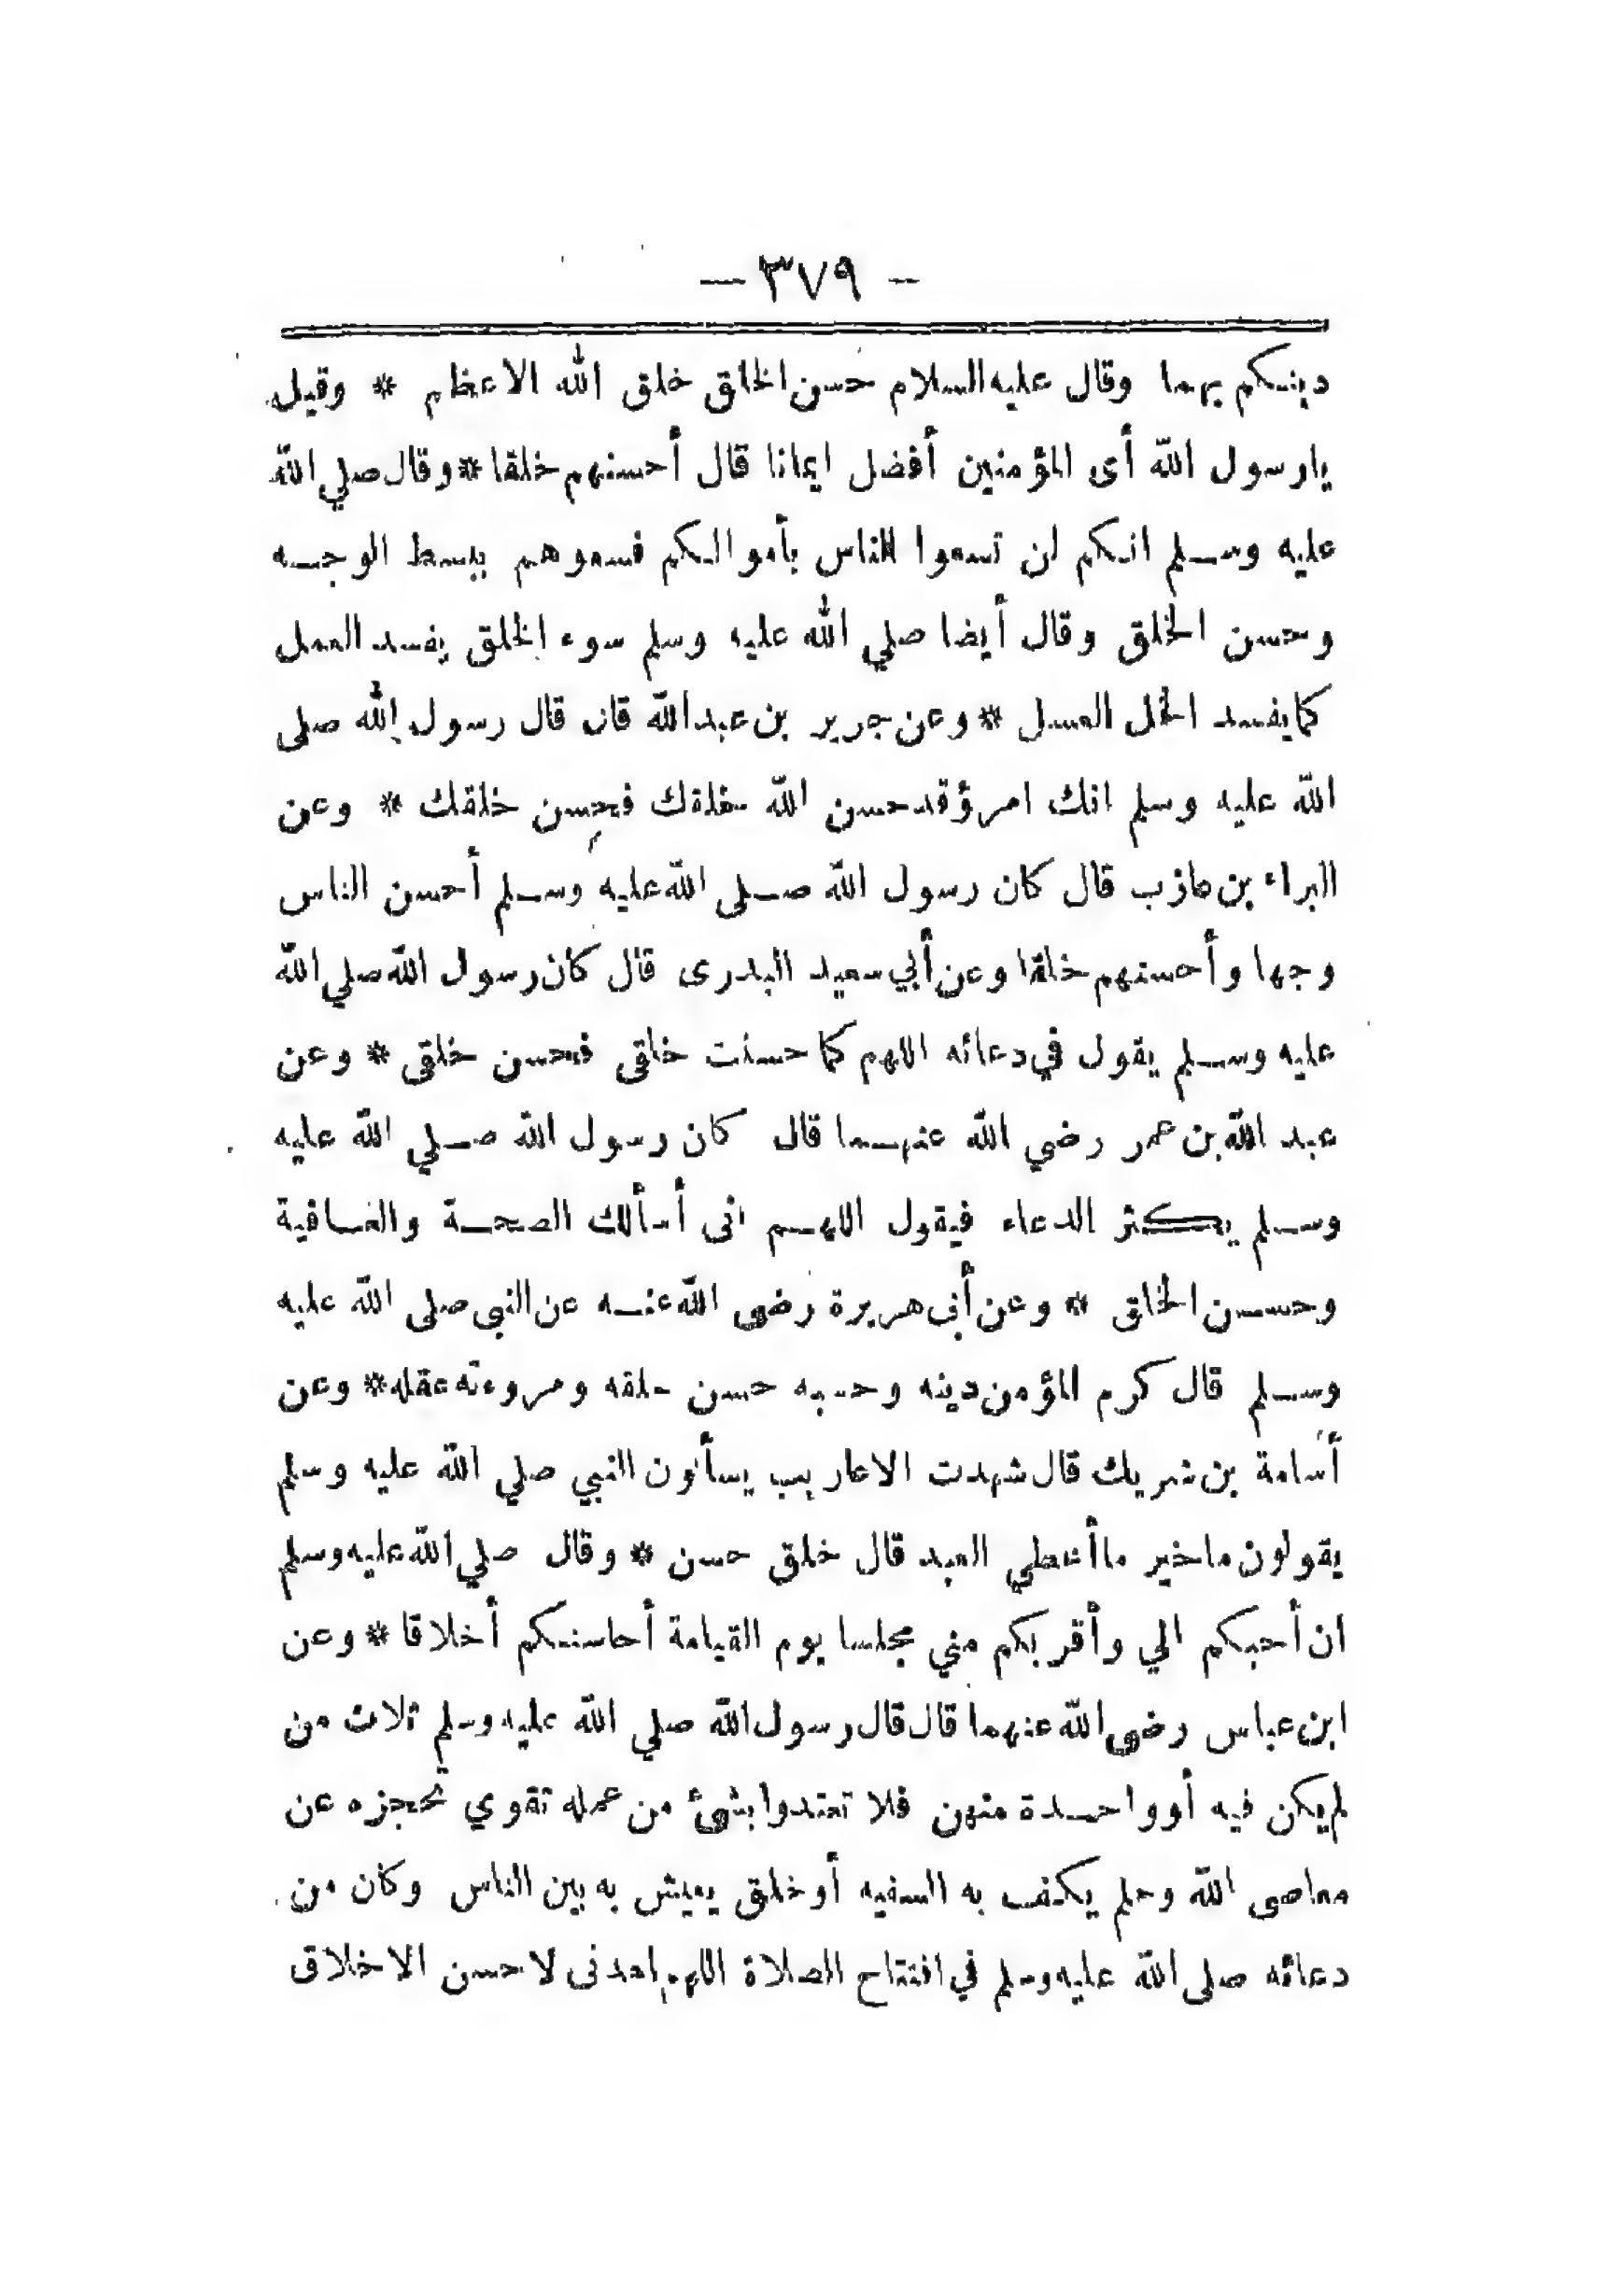 - ٣٧٩ -
دينكم بهما وقال عليه السلام حسن الخلق خلق الله الاعظم * وقيل
يارسول الله أى المؤمنين أفضل ايمانا قال أحسنهم خلقا * وقال صلي الله
عليه وسلم انكم لن تسعوا الناس بأموالكم فسعوهم ببسط الوجه
وحسن الخلق وقال أيضا صلي الله عليه وسلم سوء الخلق يفسد العمل
كما يفسد الخل العسل * وعن جرير بن عبدالله قال قال رسول الله صلى
الله عليه وسلم انك امرؤ قد حسن الله خلقك فحسن خلقك * وعن
البراء بن عازب قال كان رسول الله صلى الله عليه وسلم أحسن الناس
وجها وأحسنهم خلقا وعن أبي سعيد البدرى قال كان رسول الله صلي الله
عليه وسلم يقول في دعائه اللهم كما حسنت خلقى فحسن خلقى * وعن
عبد الله بن عمر رضي الله عنهما قال كان رسول الله صلي الله عليه
وسلم يكثر الدعاء فيقول اللهم انى أسألك الصحة والعافية
وحسن الخلق * وعن أبى هريرة رضى الله عنه عن النبى صلى الله عليه
وسلم قال كرم المؤمن دينه وحسبه حسن خلقه ومروءته عقله * وعن
أسامة بن شريك قال شهدت الاعاريب يسألون النبي صلي الله عليه وسلم
يقولون ماخير ماأعطي العبد قال خلق حسن * وقال صلي الله عليه وسلم
ان أحبكم الي وأقربكم مني مجلسا يوم القيامة أحاسنكم أخلاقا * وعن
ابن عباس رضى الله عنهما قال قال رسول الله صلي الله عليه وسلم ثلاث من
لم يكن فيه أو واحدة منهن فلا تعتدوا بشئ من عمله تقوي تحجزه عن
معاصى الله وحلم يكف به السفيه أو خلق يعيش به بين الناس وكان من
دعائه صلى الله عليه وسلم في افتتاح الصلاة اللهم اهدنى لاحسن الاخلاق